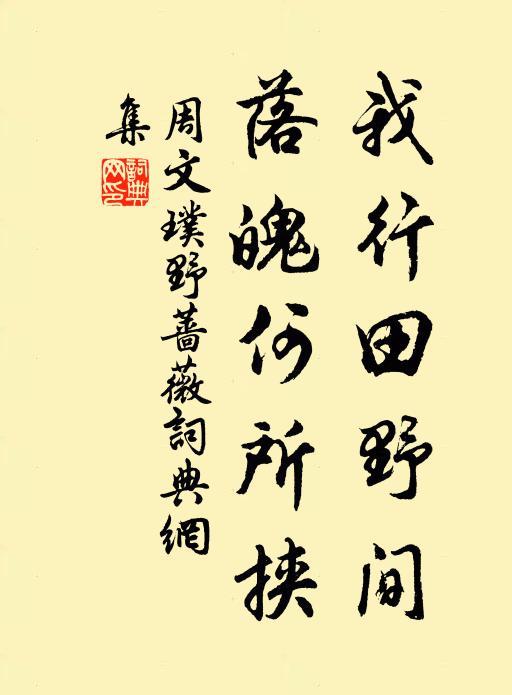 我行田野间
落魄何所挟
周文璞野薔薇詞典網
集
詞典
网印